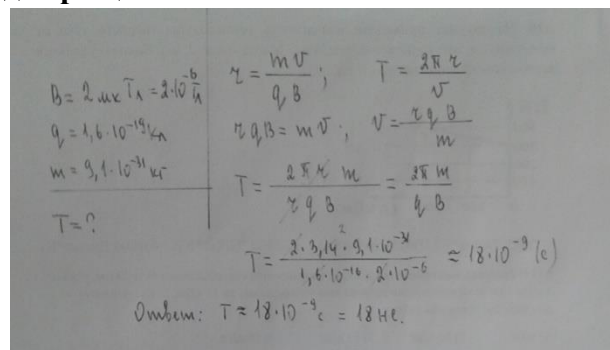 B = 2 мкТл = 2·10⁻⁶ Тл
q = 1,6·10⁻¹⁹ Кл
m = 9,1·10⁻³¹ кг
T = ?
r = mv / qB ; T = 2πr / v
rqB = mv ; v = rqB / m
T = 2πrm / rqB = 2πm / qB
T = 2·3,14·9,1·10⁻³¹ / 1,6·10⁻¹⁶·2·10⁻⁶ ≈ 18·10⁻⁹ (с)
Ответ: T ≈ 18·10⁻⁹ с = 18 нс.